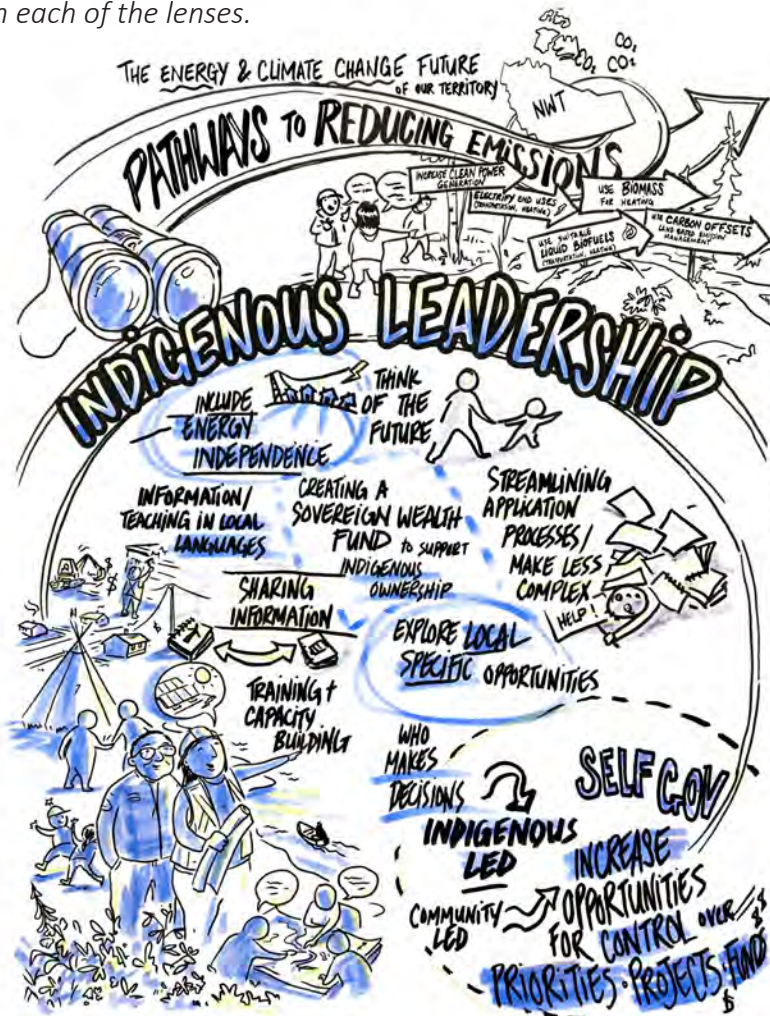 n each of the lenses.
THE ENERGY & CLIMATE CHANGE FUTURE
OF OUR TERRITORY
PATHWAYS TO REDUCING EMISSIONS
CO₂
CO₂
CO₂
NWT
INCREASE CLEAN POWER
GENERATION
ELECTRIFY END USES
(TRANSPORTATION, HEATING)
USE BIOMASS
FOR HEATING
USE SUITABLE
LIQUID BIOFUELS
(TRANSPORTATION, HEATING)
USE CARBON OFFSETS
LAND BASED EMISSION
MANAGEMENT
INDIGENOUS LEADERSHIP
INCLUDE
ENERGY
INDEPENDENCE
THINK
OF THE
FUTURE
INFORMATION/
TEACHING IN LOCAL
LANGUAGES
CREATING A
SOVEREIGN WEALTH
FUND TO SUPPORT
INDIGENOUS
OWNERSHIP
STREAMLINING
APPLICATION
PROCESSES/
MAKE LESS
COMPLEX
HELP!
SHARING
INFORMATION
EXPLORE LOCAL
SPECIFIC OPPORTUNITIES
TRAINING +
CAPACITY
BUILDING
WHO
MAKES
DECISIONS
INDIGENOUS
LED
COMMUNITY
LED
SELF GOV
INCREASE
OPPORTUNITIES
FOR CONTROL OVER
PRIORITIES · PROJECTS · FUNDS